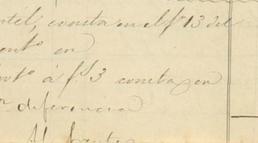 ntel, consta en el fº 13 del
entº en
ontº á fº 3 consta en
diferencia
Al frente